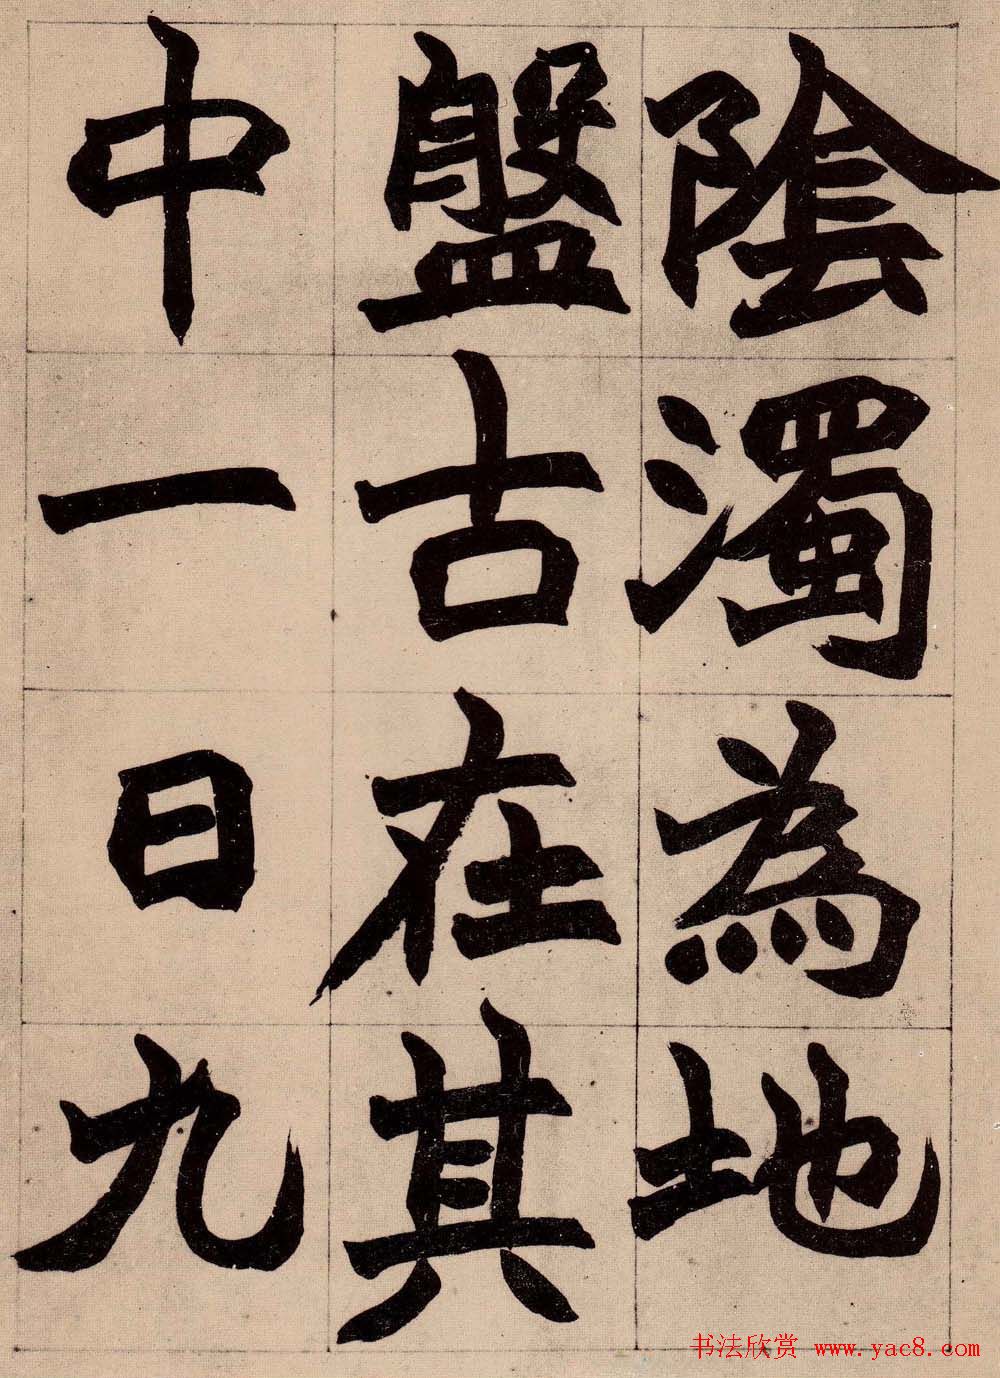 陰濁為地
盤古在其
中一日九
书法欣赏 www.yac8.com